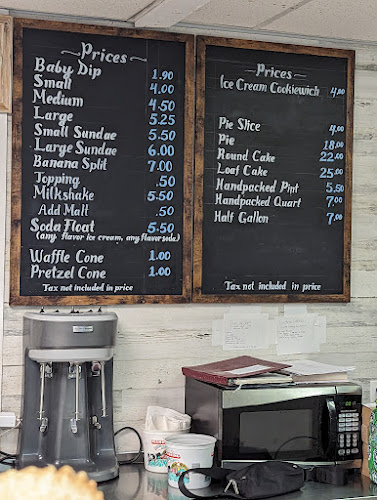 Prices
Baby Dip 1.90
Small 4.00
Medium 4.50
Large 5.25
Small Sundae 5.50
Large Sundae 6.00
Banana Split 7.00
Topping .50
Milkshake 5.50
Add Malt .50
Soda Float 5.50
(any flavor ice cream, any flavor soda)
Waffle Cone 1.00
Pretzel Cone 1.00
Tax not included in price
Prices
Ice Cream Cookiewich 4.00
Pie Slice 4.00
Pie 18.00
Round Cake 22.00
Loaf Cake 25.00
Handpacked Pint 5.50
Handpacked Quart 7.00
Half Gallon 7.00
Tax not included in price